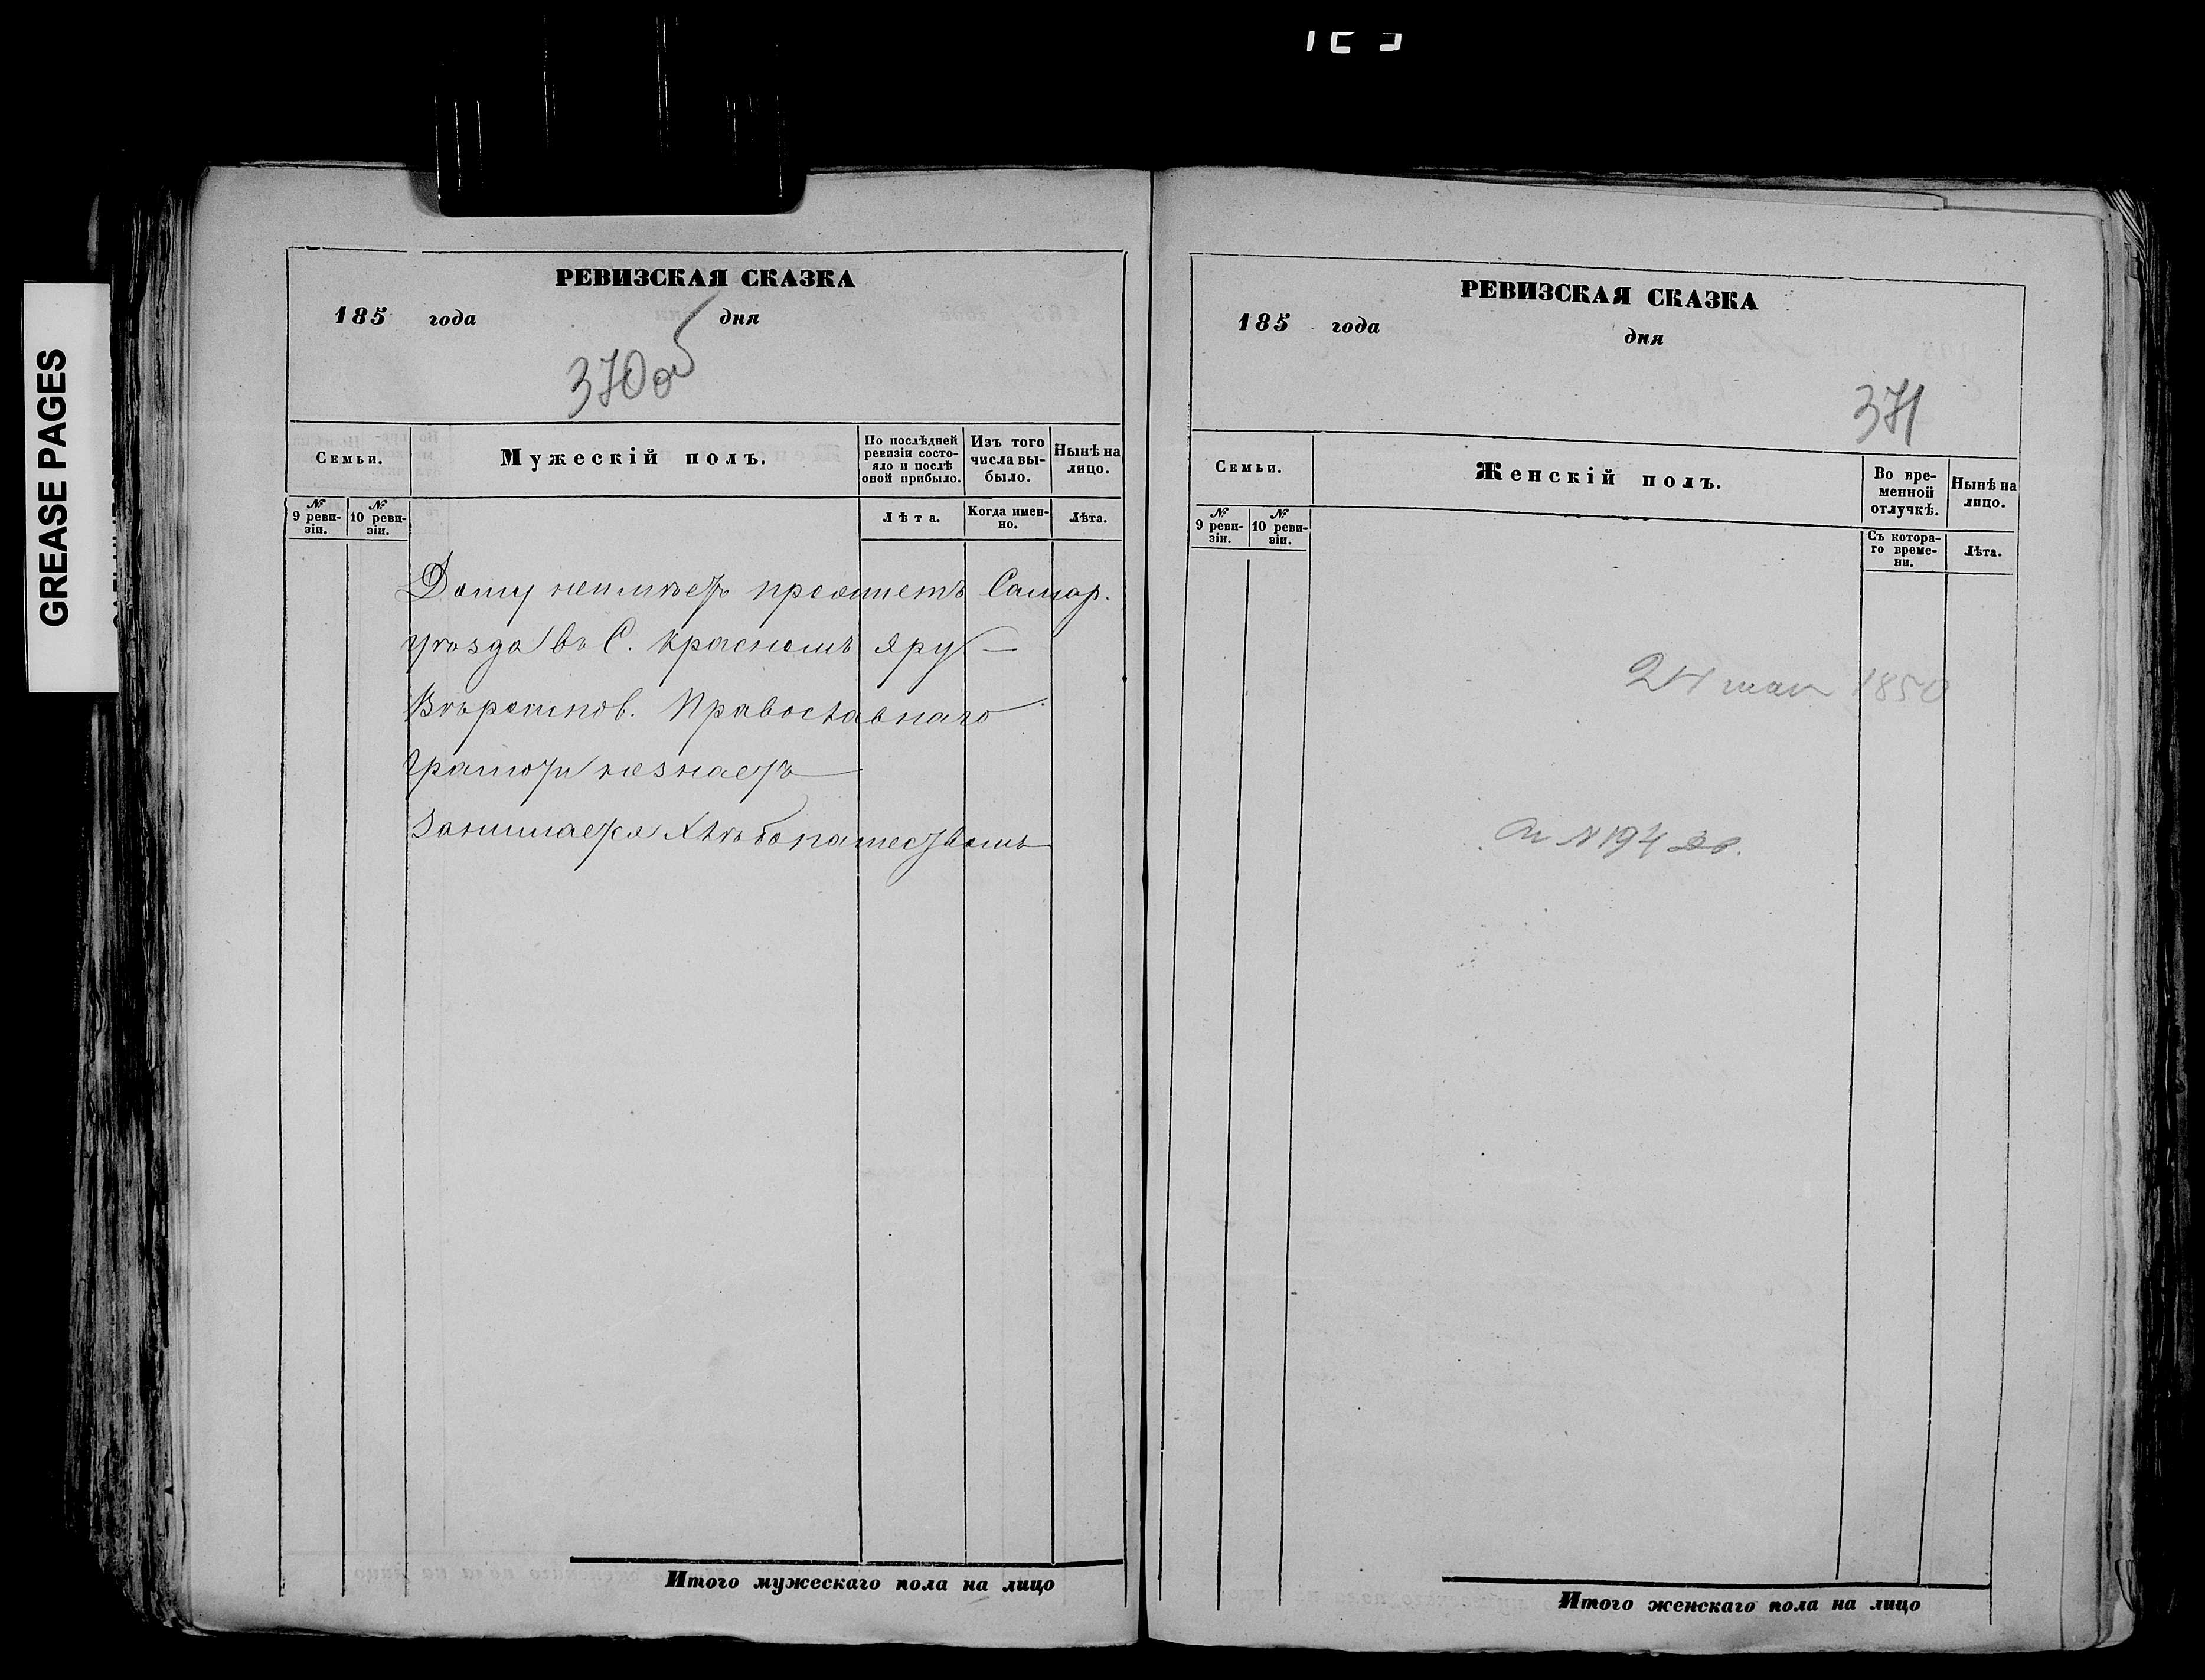 GREASE PAGES
РЕВИЗСКАЯ СКАЗКА
185 года дня
370об
Семьи.
Мужескій полъ.
По послѣдней ревизіи состо-
яло и послѣ оной прибыло.
Изъ того числа вы-
было.
Нынѣ на лицо.
№ 9 реви-
зіи.
№ 10 реви-
зіи.
Лѣта.
Когда имен-
но.
Лѣта.
Дому неимѣетъ проживетъ Самар.
уѣзда въ С. Красномъ яру
Вѣроиспов. Православнаго
Грамоти незнаетъ
Занимается Хлѣбопашествомъ
Итого мужескаго пола на лицо
РЕВИЗСКАЯ СКАЗКА
185 года дня
371
Семьи.
Женскій полъ.
Во вре-
менной
отлучкѣ.
Нынѣ на
лицо.
№ 9 реви-
зіи.
№ 10 реви-
зіи.
Съ котора-
го време-
ни.
Лѣта.
24 мая 1850
№ 194
Итого женскаго пола на лицо